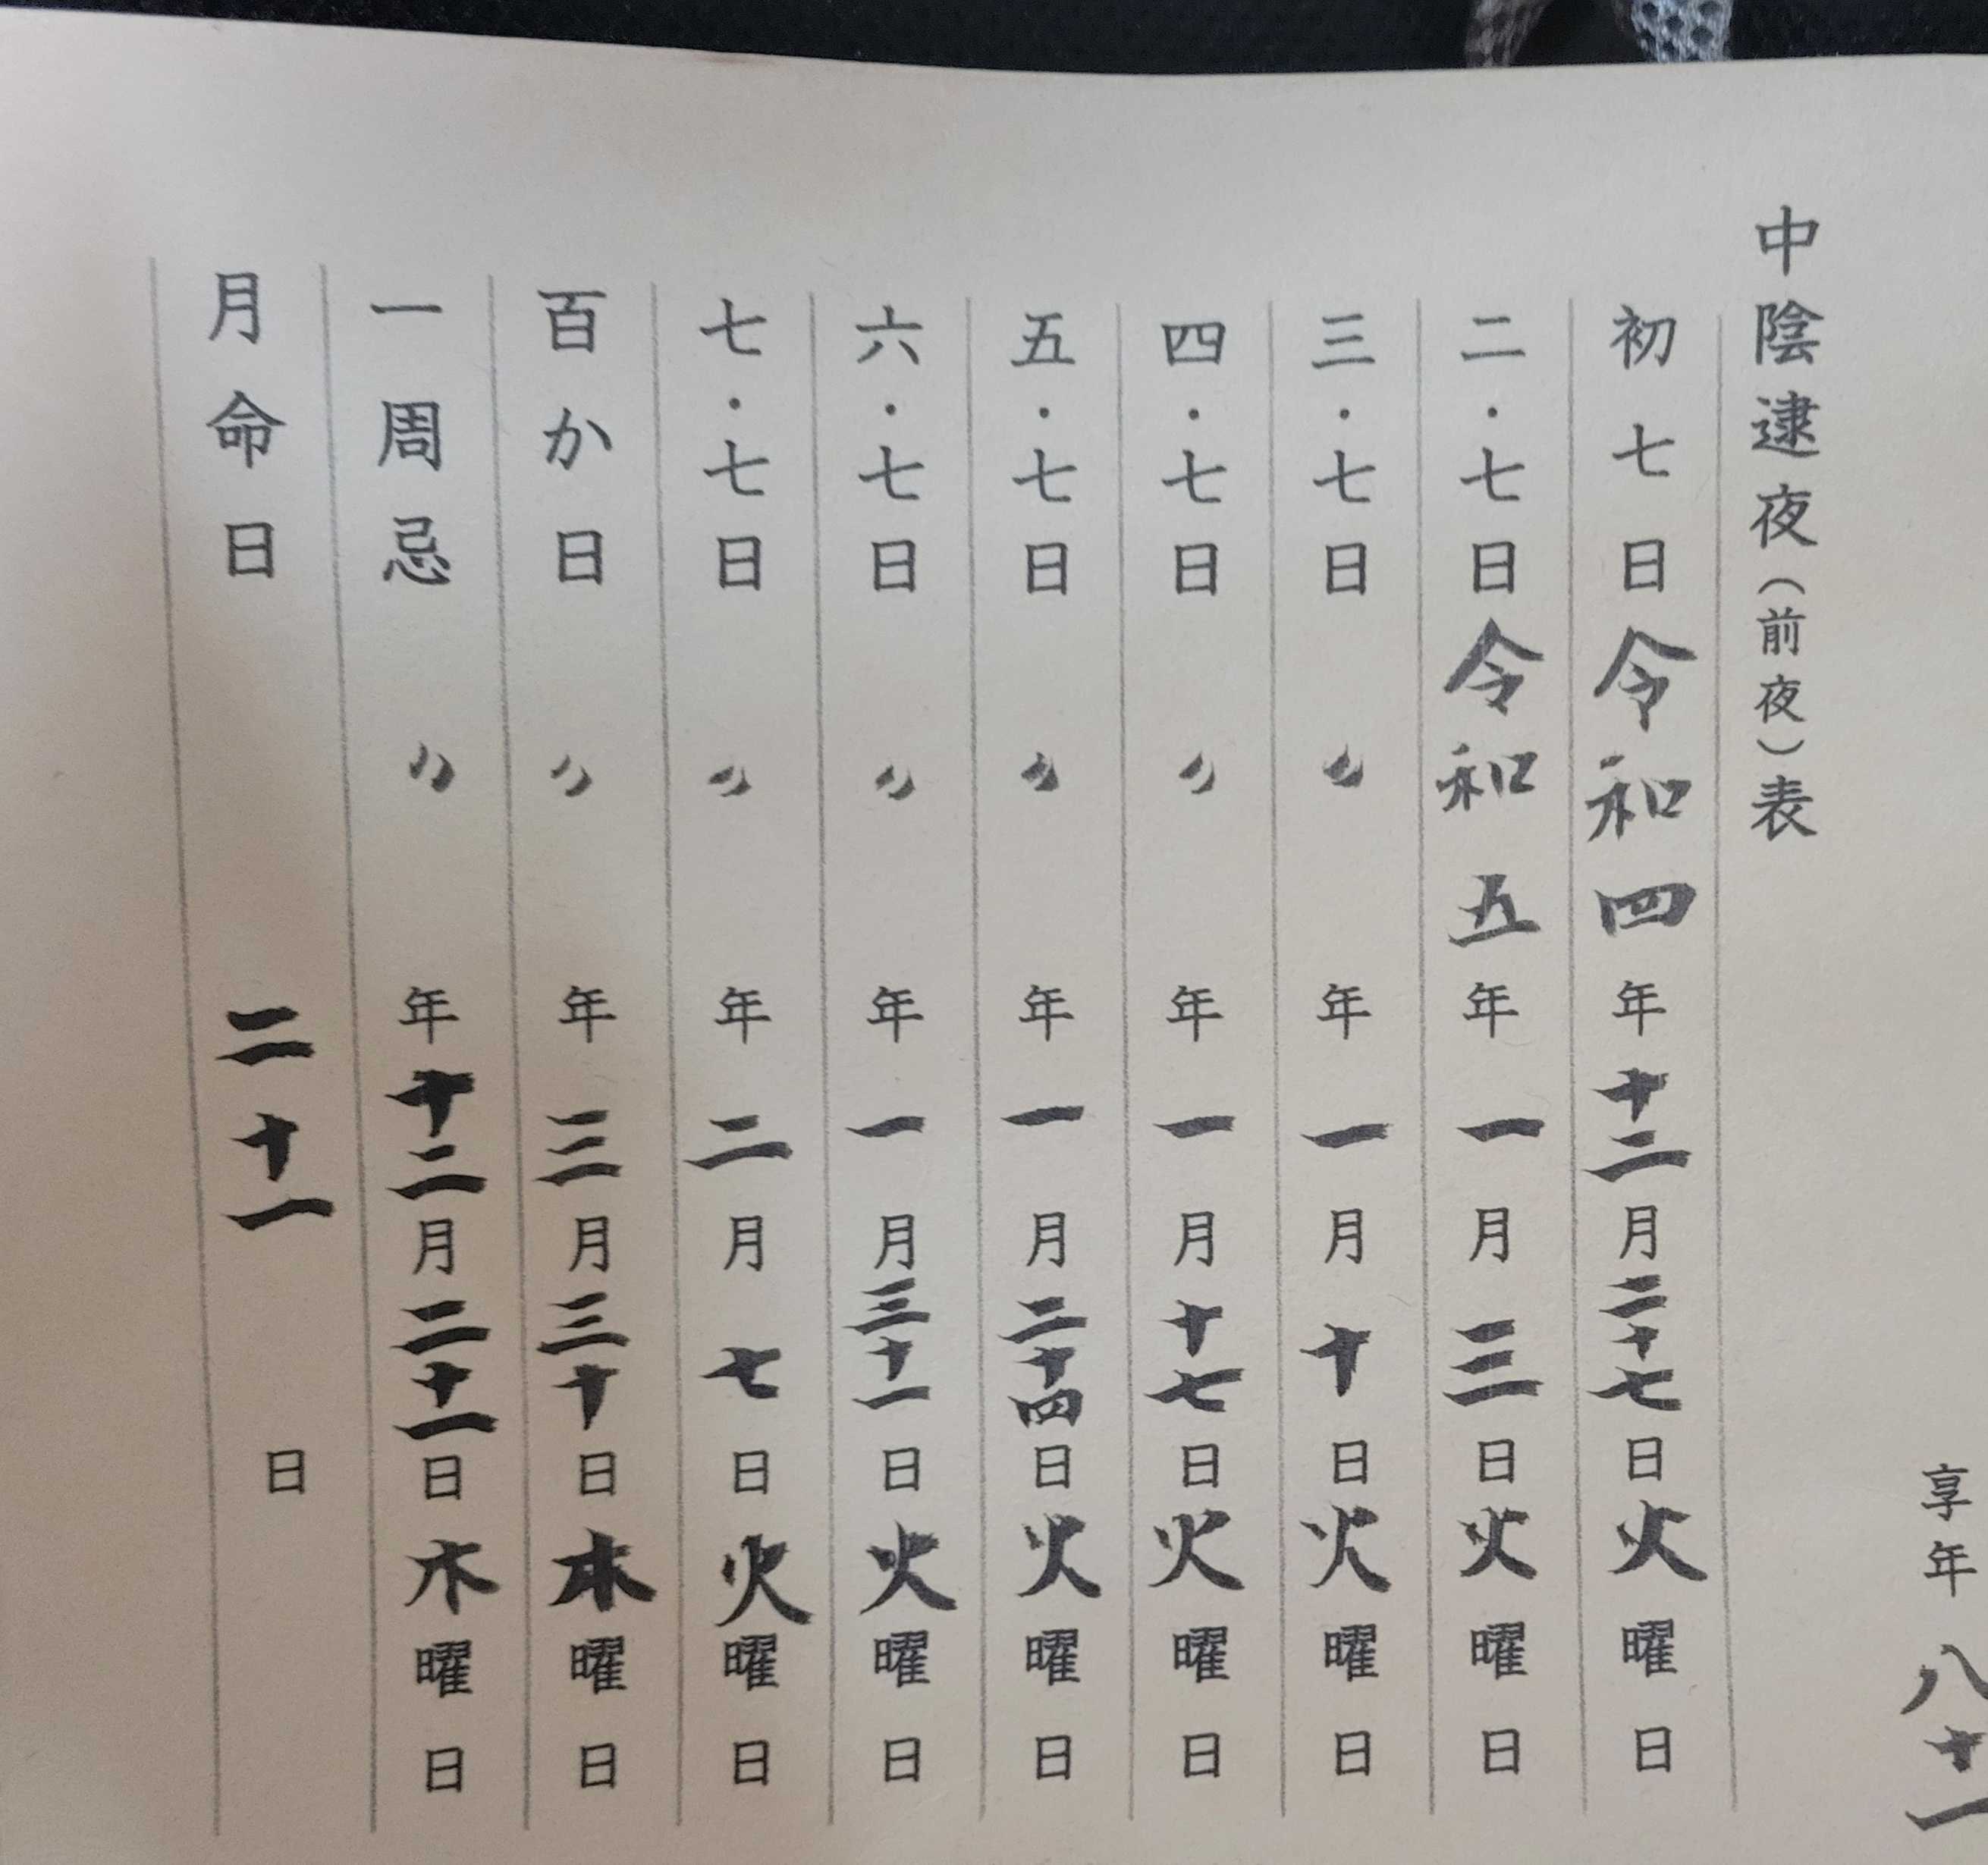 享年 八十一
中陰逮夜（前夜）表
初七日 令和四年十二月二十七日火曜日
二・七日 令和五年一月三日火曜日
三・七日 〃 年一月十日火曜日
四・七日 〃 年一月十七日火曜日
五・七日 〃 年一月二十四日火曜日
六・七日 〃 年一月三十一日火曜日
七・七日 〃 年二月七日火曜日
百か日 〃 年三月三十日木曜日
一周忌 〃 年十二月二十一日木曜日
月命日 二十一日